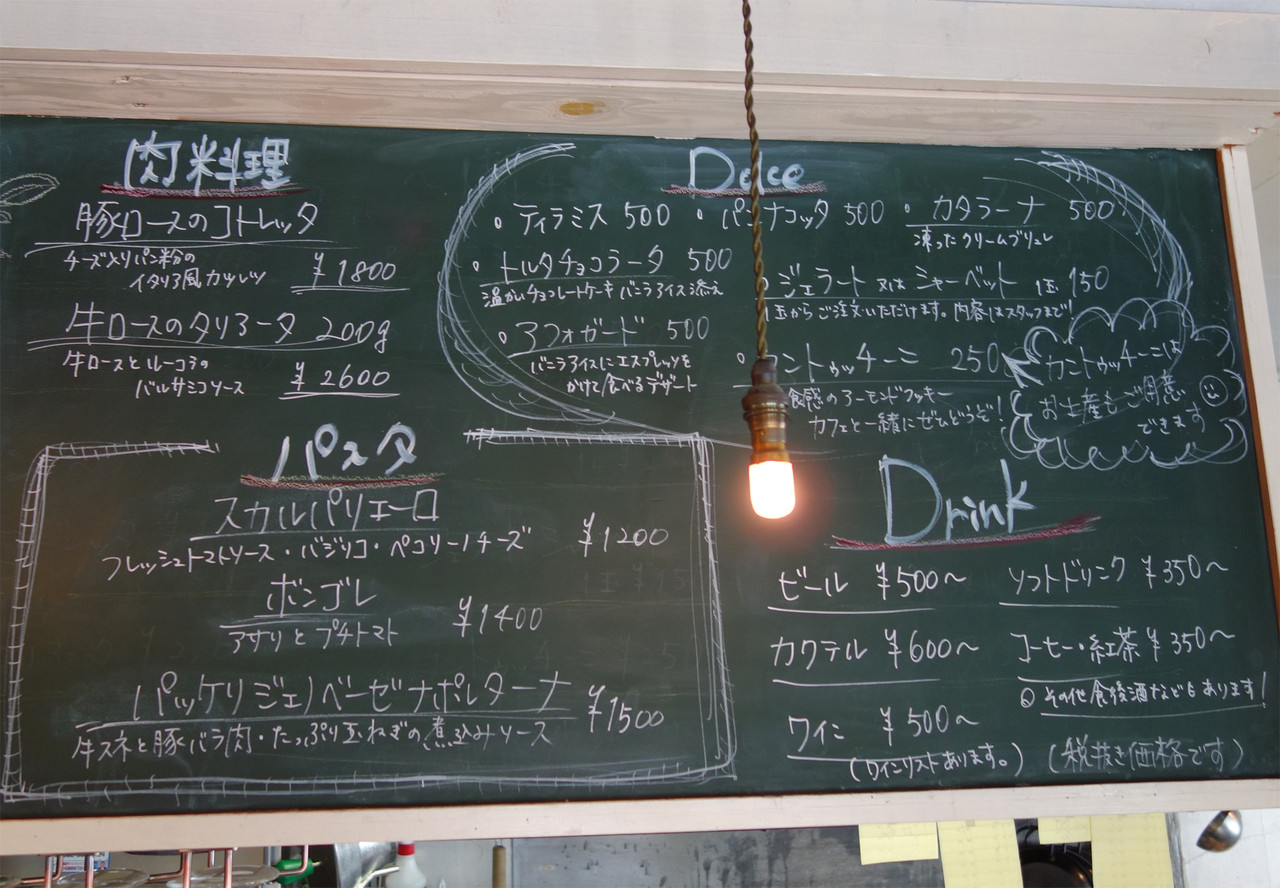 肉料理
豚ロースのコトレッタ
チーズ入りパン粉の
イタリア風カツレツ ¥1800
牛ロースのタリアータ 200g
牛ロースとルーコラの
バルサミコソース ¥2600
パスタ
スカルパリエーロ
フレッシュトマトソース・バジリコ・ペコリーノチーズ ¥1200
ボンゴレ
アサリとプチトマト ¥1400
パッケリ ジェノベーゼナポレターナ
牛スネと豚バラ肉・たっぷり玉ねぎの煮込みソース ¥1500
Dolce
・ティラミス 500 ・パンナコッタ 500 ・カタラーナ 500
凍ったクリームブリュレ
・トルタチョコラータ 500
温かいチョコレートケーキ バニラアイス添え
・アフォガード 500
バニラアイスにエスプレッソを
かけて食べるデザート
ジェラート 又は シャーベット 1玉 150
1玉からご注文いただけます。内容はスタッフまで!
・カントゥッチーニ 250
食感のアーモンドクッキー
カフェと一緒にぜひどうぞ!
カントゥッチーニは
お土産もご用意
できます
Drink
ビール ¥500〜
カクテル ¥600〜
ワイン ¥500〜
(ワインリストあります。)
ソフトドリンク ¥350〜
コーヒー・紅茶 ¥350〜
その他食後酒などもあります!
(税抜き価格です)